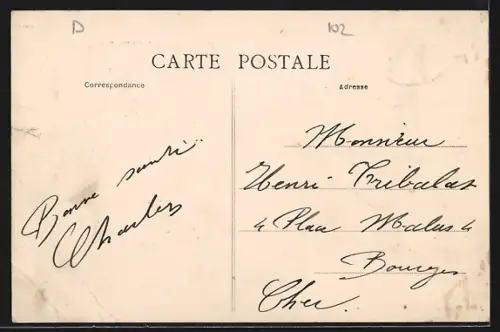 D
102
CARTE POSTALE
Correspondance
Adresse
Bonne santé
Charles
Monsieur
Henri Tribalat
4 Place Malus 4
Bourges
Cher.